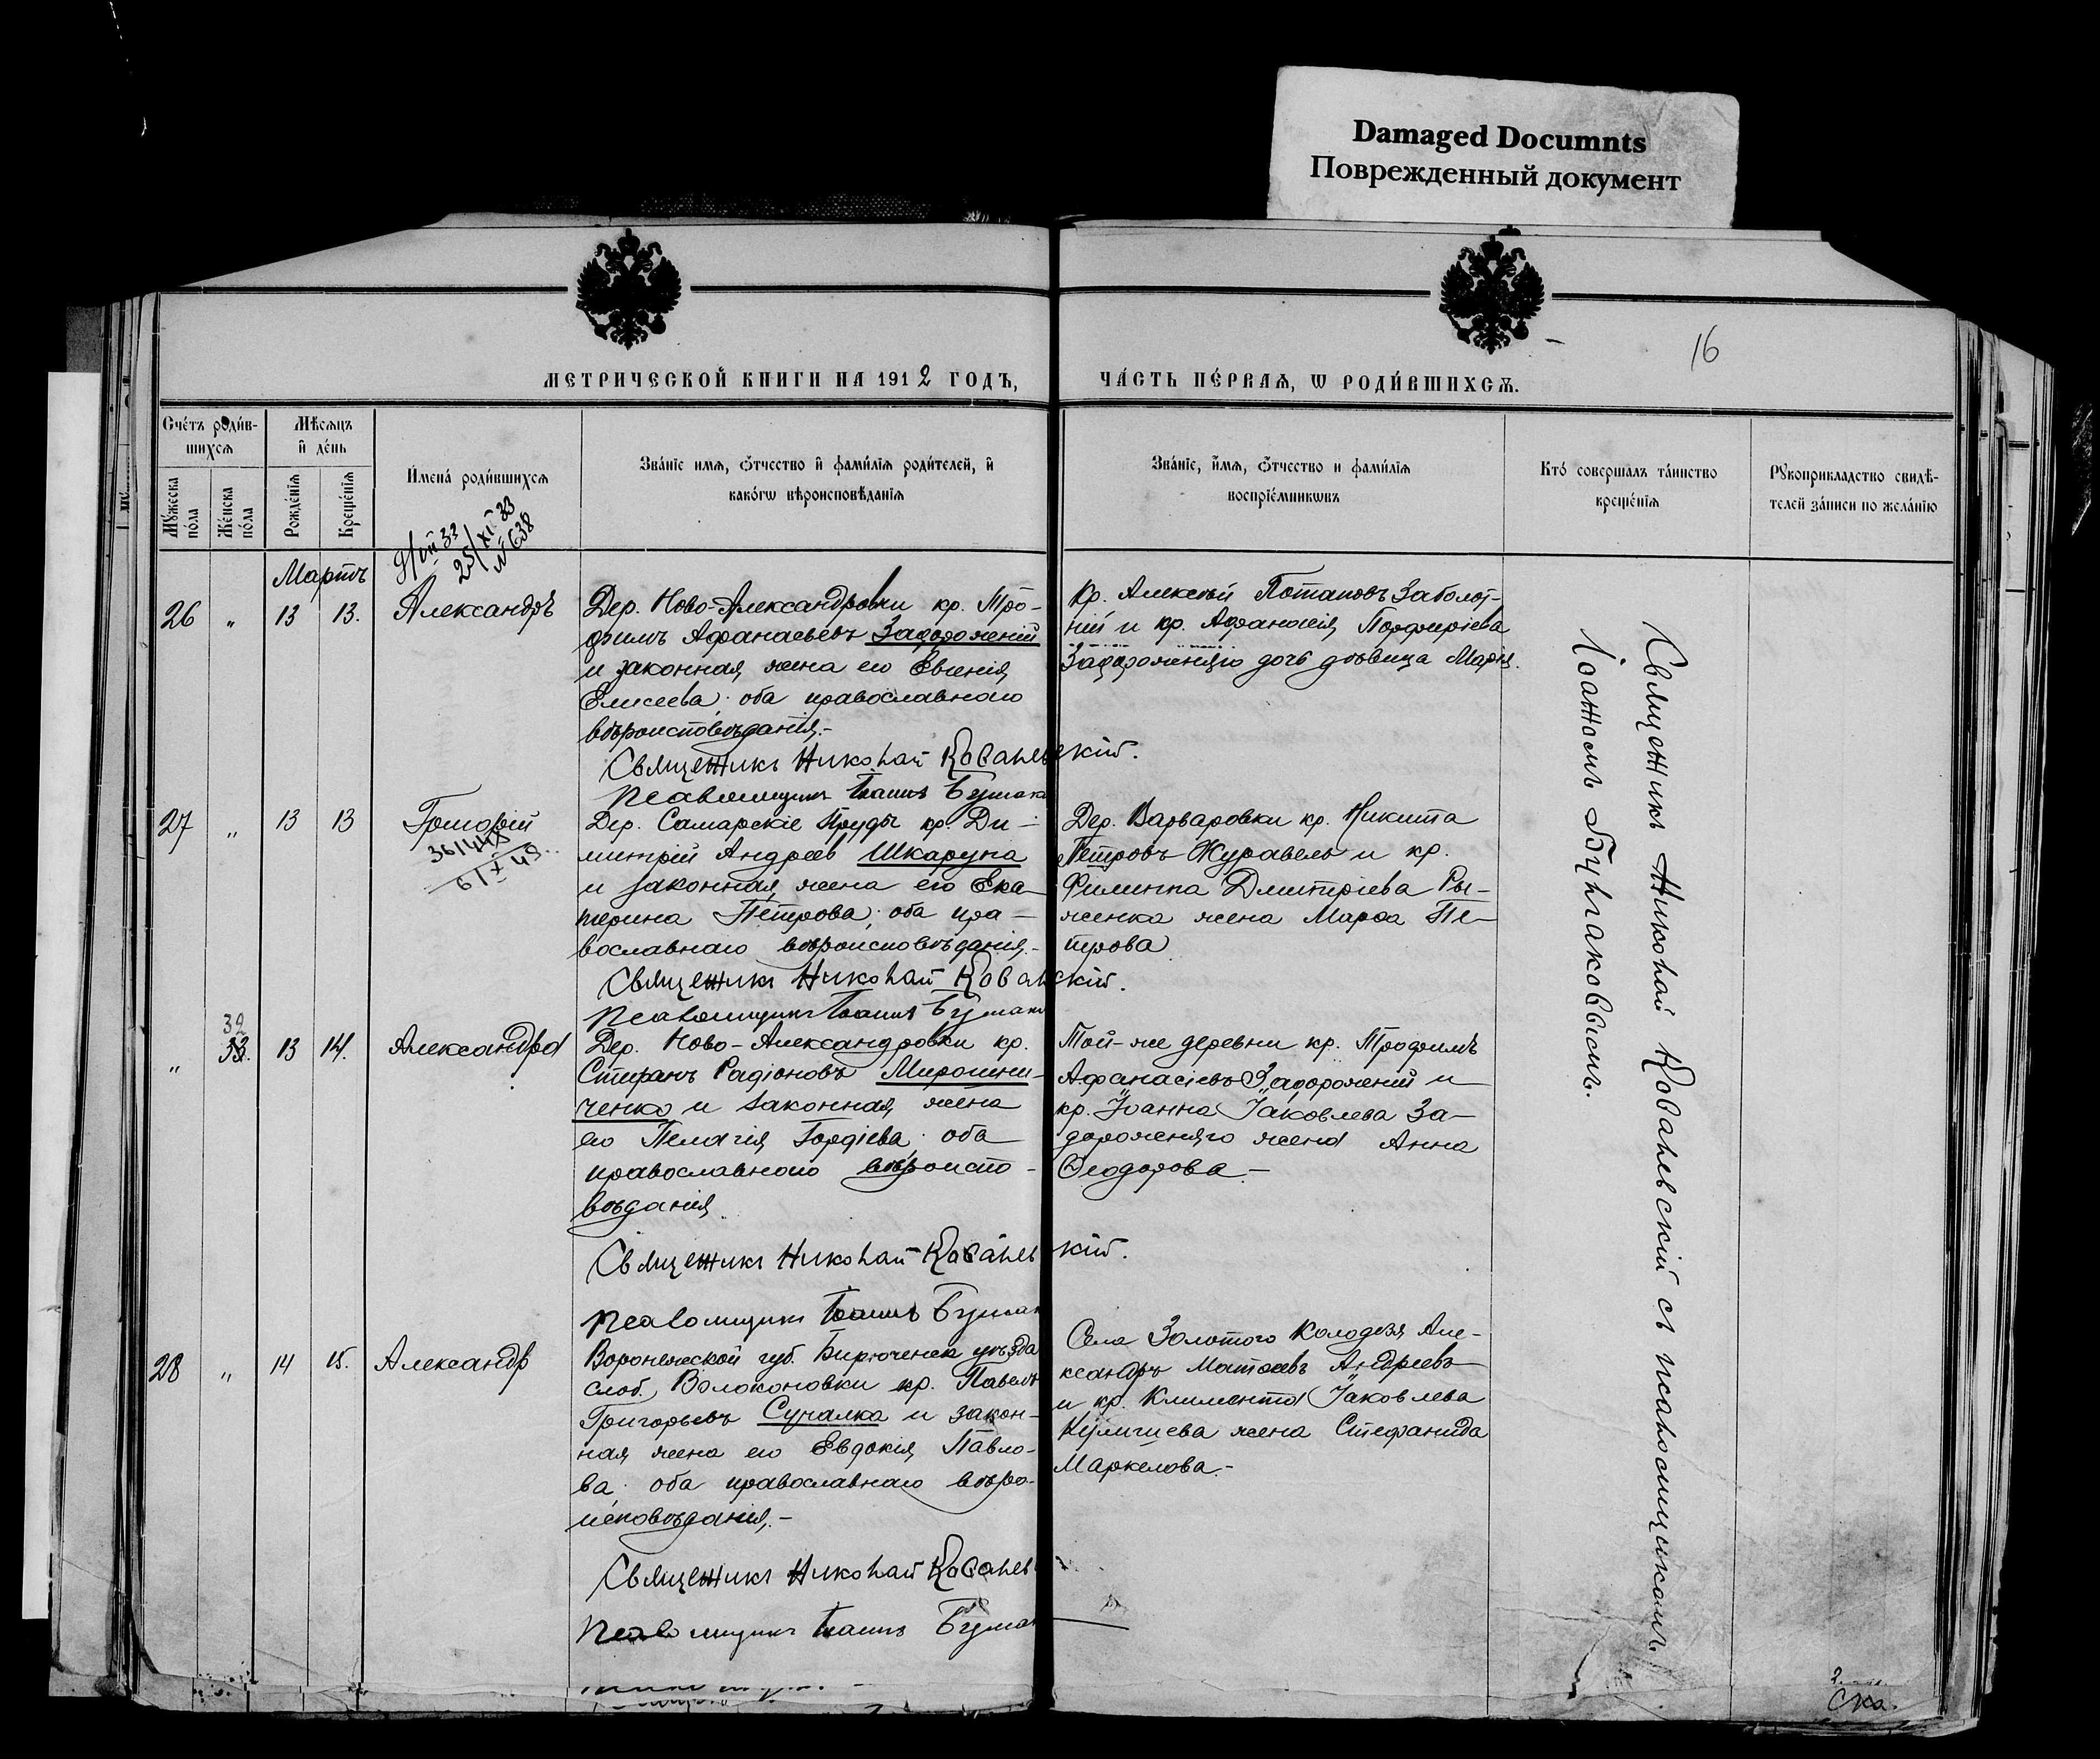 Damaged Documnts
Поврежденный документ
16
МЕТРИЧЕСКОЙ КНИГИ НА 1912 ГОДЪ,
ЧА́СТЬ ПЕ́РВАѦ, Ѡ РОДИ́ВШИХСѦ.
Сче́тъ роди́в-
шихсѧ
Мѣсѧцъ
и҆ де́нь
Му́жеска
по́ла
Же́нска
по́ла
Рожде́нїѧ
Креще́нїѧ
Имена̀ роди́вшихсѧ
Зва́нїе имѧ, ѻ҆́тчество и҆ фами́лїѧ роди́телей, и҆
како́гѡ вѣроисповѣ́данїѧ
Зва́нїе, и҆́мѧ, ѻ҆́тчество и фами́лїѧ
воспрїе́мникѡвъ
Кто̀ соверша́лъ та́инство
креще́нїѧ
Рукоприкладство свидѣ́-
телей за́писи по жела́нїю
25/XI 33
№ 638
Мартъ
26 " 13 13. Александръ
Дер. Ново-Александровки кр. Тро-
фимъ Афанасьевъ Задорожній
и законная жена его Евгенія
Елисеева; оба православнаго
вѣроисповѣданія.-
Священникъ Николай Ковалевскій.
Псаломщикъ Іоаннъ Булгак
Кр. Алексѣй Потаповъ Заболот-
ній и кр. Афанасія Порфиріева
Задорожняго дочь дѣвица Марія.
27 " 13 13 Григорій
6/X 49
Дер. Самарскіе Пруды кр. Ди-
митрій Андреевъ Шкарупа
и законная жена его Ека-
терина Петрова; оба пра-
вославнаго вѣроисповѣданія.-
Священникъ Николай Ковалевскій.
Псаломщикъ Іоаннъ Булгак
Дер. Варваровки кр. Никита
Петровъ Журавель и кр.
Филиппа Дмитріева Ры-
женка жена Марѳа Пе-
трова
" 32 33. 13 14. Александра
Дер. Ново-Александровки кр.
Стефанъ Радіоновъ Мирошни-
ченко и законная жена
его Пелагія Гордіева; оба
православнаго вѣроиспо-
вѣданія
Священникъ Николай Ковалевскій.
Псаломщикъ Іоаннъ Булгак
Той-же деревни кр. Трофимъ
Афанасіевъ Задорожній и
кр. Іоанна Іаковлева За-
дорожняго жена Анна
Ѳеодорова.-
28 " 14 15. Александръ
Воронежской губ. Бирюченск уѣзда
слоб. Волоконовки кр. Павелъ
Григорьевъ Сучалка и закон-
ная жена его Евдокія Павло-
ва; оба православнаго вѣро-
исповѣданія.-
Священникъ Николай Ковалев
Псаломщикъ Іоаннъ Булгак
Села Золотого Колодезя Але-
ксандръ Матѳеевъ Андреевъ
и кр. Климента Іаковлева
Куличиева жена Стефанида
Маркелова.-
Священникъ Николай Ковалевскій съ псаломщикомъ
Іоанномъ Булгаковымъ.